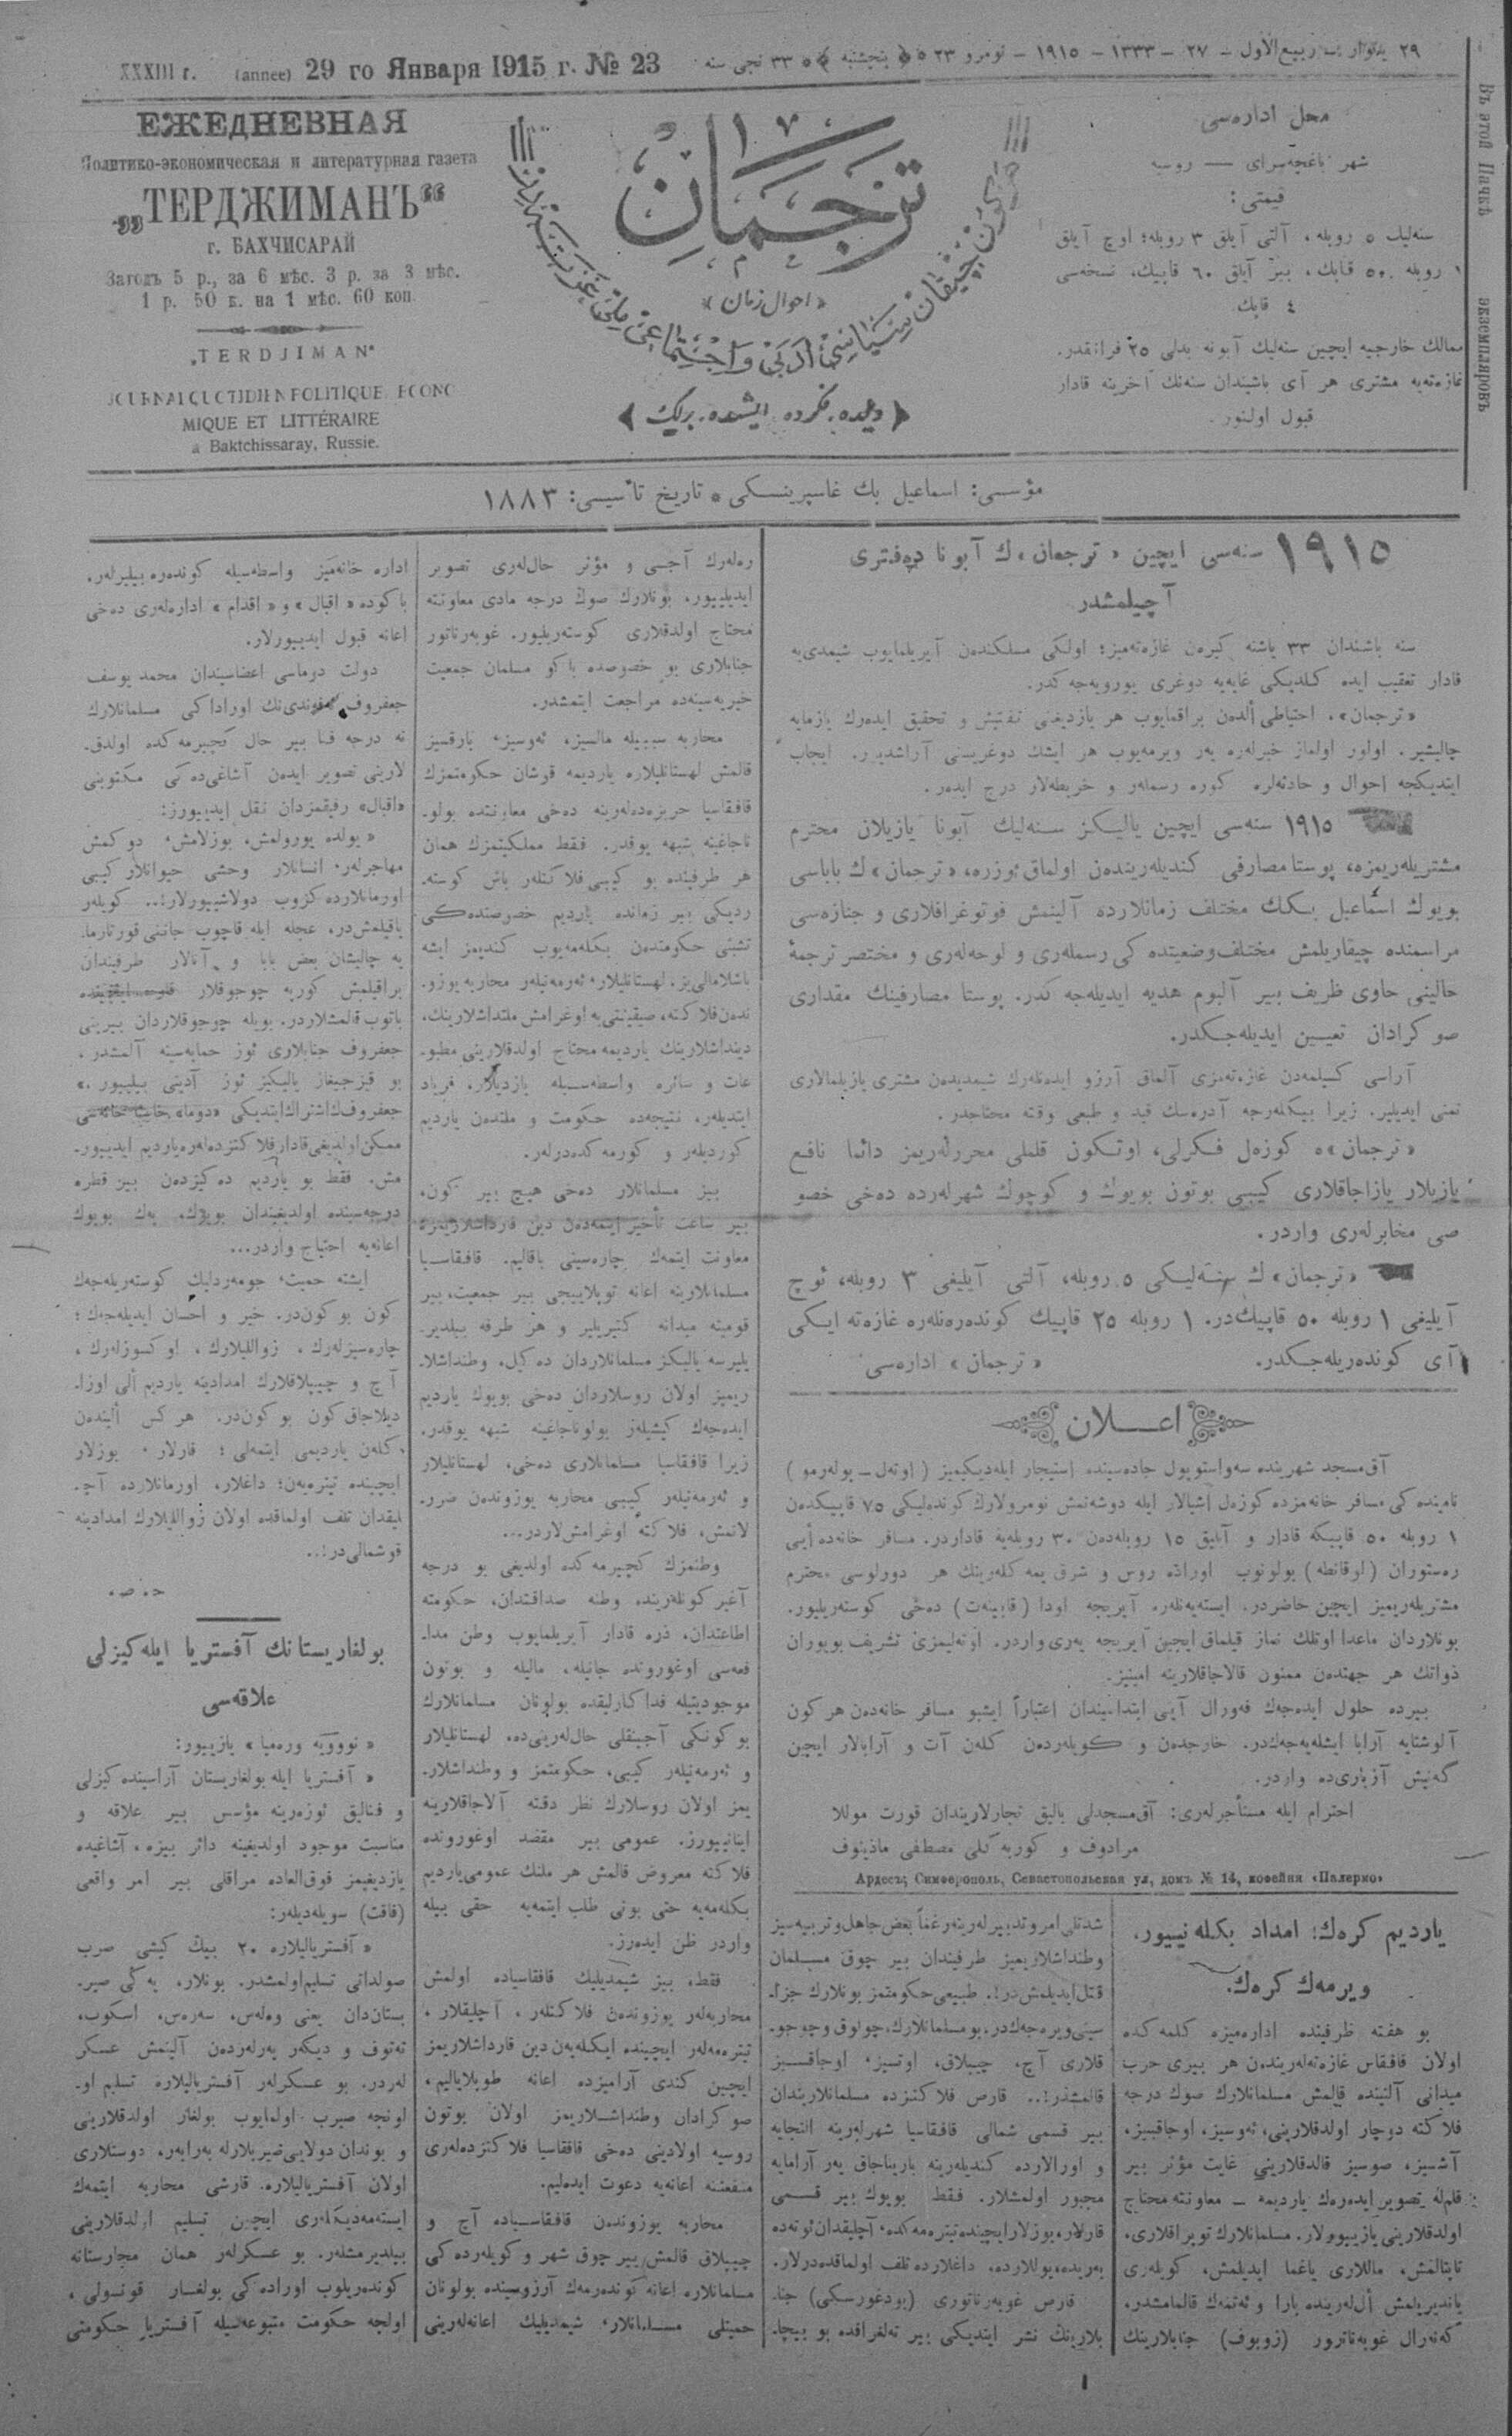 XXXIII г. (annee) 29 го Января 1915 г. № 23
٢٩ ينوار — ربيع‌الأول — ٢٧ — ١٣٣٣ — ١٩١٥ — نومرو ٢٣ ٥ پنجشنبه ٥ ٣٣ نجی سنه
ЕЖЕДНЕВНАЯ
Политико-экономическая и литературная газета
„ТЕРДЖИМАНЪ“
г. БАХЧИСАРАЙ
За годъ 5 р., за 6 мѣс. 3 р. за 3 мѣс.
1 р. 50 к. на 1 мѣс. 60 коп.
„TERDJIMAN“
JOURNAL QUOTIDIEN POLITIQUE ECONO
MIQUE ET LITTÉRAIRE
a Baktchissaray, Russie.
ترجمان
« احوال زمان »
﴿ دیلده، فکرده، ایشده، برلك ﴾
محل اداره‌سی
شهر باغچه‌سرای — روسیه
قیمتی:
سنه‌لیك ٥ روبله، آلتی آیلق ٣ روبله؛ اوچ آیلق
١ روبله ٥٠ قاپك، بیر آیلق ٦٠ قاپیك، نسخه‌سی
٤ قاپك
ممالك خارجیه ایچین سنه‌لیك آبونه بدلی ٢٥ فرانقدر.
غازه‌ته‌یه مشتری هر آی باشیندان سنه‌نك آخرینه قادار
قبول اولنور.
Въ этой Пачкѣ экземпляровъ
مؤسسی: اسماعیل بك غاسپرینسکی ٭ تاریخ تأسیسی: ١٨٨٣
١٩١٥ سنه‌سی ایچین «ترجمان» ك آبونا ده‌فتری
آچیلمشدر
سنه باشندان ٣٣ یاشنه کیره‌ن غازه‌ته‌میز؛ اولکی مسلکندن آیریلمایوب شیمدی‌یه
قادار تعقیب ایده کلدیکی غایه‌یه دوغری یورویه‌جه‌کدر.
«ترجمان»، احتیاطی ألدن براقمایوب هر یازدیغنی تفتیش و تحقیق ایده‌رك یازمایه
چالیشیر. اولور اولماز خبرلره یه‌ر ویرمه‌یوب هر ایشك دوغریسنی آراشدیرر. ایجاب
ایتدیکجه احوال و حادثه‌لره کوره رسملەر و خریطه‌لار درج ایده‌ر.
١٩١٥ سنه‌سی ایچین یالیکز سنه‌لیك آبونا یازیلان محترم
مشتریله‌ریمزه، پوستا مصارفی کندیله‌ریندەن اولماق ئوزره، «ترجمان» ك باباسی
بویوك اسماعیل بكك مختلف زمانلارده آلینمش فوتوغرافلاری و جنازه‌سی
مراسمنده چیقاریلمش مختلف وضعیتده کی رسمله‌ری و لوحه‌له‌ری و مختصر ترجمهٔ
حالینی حاوی ظریف بیر آلبوم هدیه ایدیله‌جه‌کدر. پوستا مصارفینك مقداری
صوکرادان تعیین ایدیله‌جکدر.
آراسی کسیلمەدن غازه‌ته‌مزی آلماق آرزو ایده‌نله‌رك شیمدیدن مشتری یازیلمالاری
تمنی ایدیلیر. زیرا بیكلەرجه آدره‌سك قید و طبعی وقته محتاجدر.
«ترجمان»ه کوزه‌ل فکرلی، اوتکون قلملی محررله‌ریمز دائما نافع
یازیلار یازاجاقلاری کیبی بوتون بویوك و کوچوك شهرله‌رده ده‌خی خصو
صی مخابرله‌ری واردر.
«ترجمان» ك سنه‌لیکی ٥ روبله، آلتی آیلیغی ٣ روبله، ئوچ
آیلیغی ١ روبله ٥٠ قاپیك‌در. ١ روبله ٢٥ قاپیك کونده‌ره‌نله‌ره غازه‌ته ایکی
آی کونده‌ریله‌جکدر.
«ترجمان» اداره‌سی
اعــلان
آق‌مسجد شهرینده سه‌واستوپول جاده‌سینده استیجار ایله‌دیکیمیز (اوته‌ل — پوله‌رمو)
نامینده کی مسافر خانه‌مزده کوزه‌ل اشیالار ایله دوشه‌نمش نومرولارك کونده‌لیکی ٧٥ قاپیکدن
١ روبله ٥٠ قاپیکه قادار و آیلیق ١٥ روبله‌دەن ٣٠ روبله‌یه قاداردر. مسافر خانه‌ده أیی
ره‌ستوران (لوقانطه) بولونوب اوراده روس و شرق یمه‌کله‌رینك هر دورلوسی محترم
مشتریله‌ریمیز ایچین حاضردر. ایسته‌یه‌نله‌ره آیریجه اودا (قابینه‌ت) ده‌خی کوسته‌ریلیور.
بونلاردان ماعدا اوتلك نماز قیلماق ایچین آیریجه یه‌ری واردر. اوته‌لیمزی تشریف بویوران
ذواتك هر جهتدەن ممنون قالاجاقلارینه امینیز.
بیرده حلول ایده‌جه‌ك فه‌ورال آیی ابتداسیندان اعتباراً ایشبو مسافر خانه‌دەن هر کون
آلوشتایه آرابا ایشله‌یه‌جه‌ك‌در. خارجدەن و کویلەردەن کلەن آت و آرابالار ایچین
گه‌نیش آزباری‌ده واردر.
احترام ایله مستأجرله‌ری: آق‌مسجدلی بالیق تجارلاریندان قورت موللا
مرادوف و کوربه کلی مصطفی ماذینوف
Ардесъ; Симферополь, Севастопольская ул, домъ № 14, кофейня «Палермо»
یاردیم کره‌ك؛ امداد بکله‌نییور،
ویرمه‌ك کره‌ك.
بو هفته ظرفینده اداره‌میزه کلمه‌کده
اولان قافقاس غازه‌ته‌له‌ریندەن هر بیری حرب
میدانی آلتینده قالمش مسلمانلارك صوك درجه
فلاکته دوچار اولدقلارینی، ئه‌وسیز، اوجاقسیز،
آشسیز، صوسیز قالدقلارینی غایت مؤثر بیر
قلمله تصویر ایده‌رەك یاردیمه — معاونته محتاج
اولدقلارینی یازییورلار. مسلمانلارك توپراقلاری،
تاپتالنمش، ماللاری یاغما ایدیلمش، کویله‌ری
یاندیریلمش أل‌له‌رینده پارا و ئه‌تمه‌ك قالمامشدر.
که‌نه‌رال غوبه‌ناترور (زوبوف) جنابلارینك
شدتلی امر و تدبیرله‌رینه رغماً بعض جاهل و تربیه‌سیز
وطنداشلاریمیز طرفیندان بیر چوق مسلمان
قتل ایدیلمش‌در!. طبیعی حکومتمز بونلارك جزا-
سینی ویره‌جه‌ك‌در. بو مسلمانلارك، چولوق وچوجو-
قلاری آچ، چیپلاق، اوتسیز، اوجاقسیز
قالمشدر!.. قارص فلاکتزده مسلمانلاریندان
بیر قسمی شمالی قافقاسیا شهرله‌رینه التجایه
و اورالارده کندیله‌رینه باریناجاق یه‌ر آرامایه
مجبور اولمشلار. فقط بویوك بیر قسمی
قارلار، بوزلار ایچینده تیتره‌مه‌کده، آچلیقدان ئوته‌ده
به‌ریده، یوللارده، داغلارده تلف اولماقده‌درلار.
قارص غوبه‌رناتوری (پودغورسکی) جنا-
بلارینك نشر ایتدیکی بیر ته‌لغرافده بو بیچا-
ره‌له‌رك آجسی و مؤثر حال‌له‌ری تصویر
ایدیلییور، بونلارك صوك درجه مادی معاونته
محتاج اولدقلاری کوسته‌ریلیور. غوبه‌رناتور
جنابلاری بو خصوصده باکو مسلمان جمعیت
خیریه‌سینه‌ده مراجعت ایتمشدر.
محاربه سببیله مالسیز، ئه‌وسیز، یارقسیز
قالمش لهستانلیلاره یاردیمه قوشان حکومتمزك
قافقاسیا حربزده‌له‌رینه ده‌خی معاونتده بولو-
ناجاغینه شبهه یوقدر. فقط مملکتیمزك همان
هر طرفینده بو کیبی فلاکتلەر باش کوسته-
ردیکی بیر زمانده یاردیم خصوصنده‌کی
تشبثی حکومتدەن بکله‌مه‌یوب کندیمز ایشه
باشلامالی‌یز. لهستانلیلار، ئه‌رمه‌نیله‌ر محاربه یوزو-
ندەن فلاکته، صیقینتی‌یه اوغرامش ملتداشلارینك،
دینداشلارینك یاردیمه محتاج اولدقلارینی مطبو-
عات و سائره واسطه‌سیله یازدیلار، فریاد
ایتدیلەر، نتیجه‌ده حکومت و ملتدەن یاردیم
کوردیلەر و کورمه‌کده‌درلەر.
بیز مسلمانلار ده‌خی هیچ بیر کون،
بیر ساعت تأخیر ایتمه‌دەن دین قارداشلاریمزه
معاونت ایتمه‌ك چاره‌سینی باقالیم. قافقاسیا
مسلمانلارینه اعانه توپلاییجی بیر جمعیت، بیر
قومیته میدانه کتیریلیر و هر طرفه بیلدیر-
یلیرسه یالیکز مسلمانلاردان ده‌کیل، وطنداشلا-
ریمیز اولان روسلاردان ده‌خی بویوك یاردیم
ایده‌جه‌ك کیشیلەر بولوناجاغینه شبهه یوقدر.
زیرا قافقاسیا مسلمانلاری ده‌خی، لهستانلیلار
و ئه‌رمه‌نیلەر کیبی محاربه یوزوندەن ضرر-
لانمش، فلاکته اوغرامش‌لاردر...
وطنمزك کچیرمه‌کده اولدیغی بو درجه
آغیر کونله‌رینده وطنه صداقتدان، حکومته
اطاعتدان، ذره قادار آیریلمایوب وطن مدا-
فعه‌سی اوغورونده جانیله، مالیله و بوتون
موجودیتیله فداکارلیقده بولونان مسلمانلارك
بو کونکی آجینقلی حال‌له‌رینی‌ده، لهستانلیلار
و ئه‌رمه‌نیله‌ر کیبی، حکومتمز و وطنداشلار-
یمز اولان روسلارك نظر دقته آلاجاقلارینه
اینانییورز. عمومی بیر مقصد اوغورونده
فلاکته معروض قالمش هر ملتك عمومی یاردیم
بکله‌مه‌یه حتی بونی طلب ایتمه‌یه حقی بیله
واردر ظن ایده‌رز.
فقط، بیز شیمدیلیك قافقاسیاده اولمش
محاربه‌لەر یوزوندەن فلاکتلەر، آچلیقلار،
تیتره‌مه‌لەر ایچینده ایکله‌یه‌ن دین قارداشلاریمز
ایچین کندی آرامیزده اعانه طوپلایالیم،
صوکرادان وطنداشلاریمز اولان بوتون
روسیه اولادینی ده‌خی قافقاسیا فلاکتزده‌له‌ری
منفعتنه اعانه‌یه دعوت ایده‌لیم.
محاربه یوزوندەن قافقاسیاده آچ و
چیپلاق قالمش بیر چوق شهر و کویلەرده کی
مسلمانلاره اعانه کونده‌رمه‌ك آرزوسینده بولونان
حمیتلی مسلمانلار، شیمدیلیك اعانه‌له‌رینی
اداره خانه‌میز واسطه‌سیله کونده‌ره بیلیرلەر.
باکوده «اقبال» و «اقدام» اداره‌له‌ری ده‌خی
اعانه قبول ایدییورلار.
دولت دوماسی اعضاسیندان محمد یوسف
جعفروف أفندی‌نك اوراداکی مسلمانلارك
نه درجه فنا بیر حال کچیرمه‌کده اولدق-
لارینی تصویر ایدەن آشاغی‌ده‌کی مکتوبنی
«اقبال» رفیقمزدان نقل ایدییورز:
«یولده یورولمش، بوزلامش، دوکمش
مهاجرلەر، انسانلار وحشی حیوانلار کیبی
اورمانلارده کزوب دولاشییورلار!.. کویلەر
یاقیلمش‌در، عجله ایله قاچوب جاننی قورتارما-
یه چالیشان بعض بابا و آنالار طرفیندان
براقیلمش کوربه چوجوقلار
باتوب قالمشلاردر. بویله چوجوقلاردان بیرینی
جعفروف جنابلاری ئوز حمایه‌سینه آلمشدر،
بو قیزجیغاز یالیکیز ئوز آدینی بیلییور.»
جعفروف‌ك اشتراك ایتدیکی «دوما» خاستا خانه‌سی
ممکن اولدیغی قادار فلاکتزده‌له‌ره یاردیم ایدییور-
مش. فقط بو یاردیم ده‌کیزدەن بیر قطره
درجه‌سینده اولدیغیندان بویوك، پەك بویوك
اعانه‌یه احتیاج واردر...
ایشته حمیت، جومه‌ردلیك کوسته‌ریله‌جه‌ك
کون بو کون‌در. خیر و احسان ایدیله‌جه‌ك؛
چاره‌سیزله‌رك، زواللیلارك، اوکسوزله‌رك،
آچ و چیپلاقلارك امدادینه یاردیم ألی اوزا-
دیلاجاق کون بو کون‌در. هر کس ألیندەن
کلەن یاردیمی ایتمه‌لی؛ قارلار، بوزلار
ایچینده تیتره‌یه‌ن؛ داغلار، اورمانلارده آچ-
لیقدان تلف اولماقده اولان زواللیلارك امدادینه
قوشمالی‌در!..
ح. ص.
بولغاریستانك آفستریا ایله کیزلی
علاقه‌سی
«نوویه وره‌میا» یازییور:
«آفستریا ایله بولغاریستان آراسینده کیزلی
و فنالیق ئوزه‌رینه مؤسس بیر علاقه و
مناسبت موجود اولدیغینه دائر بیزه، آشاغیده
یازدیغیمز فوق‌العاده مراقلی بیر امر واقعی
(فاقت) سویله‌دیلەر:
«آفستریالیلاره ٢٠ بیك کیشی صرب
صولداتی تسلیم اولمشدر. بونلار، یه‌کی صیر-
بستان‌دان یعنی وه‌له‌س، سه‌ره‌س، اسکوب،
ته‌توف و دیکەر یه‌رلەردەن آلینمش عسکر
لەردر. بو عسکرلەر آفستریالیلاره تسلیم او-
لونجه صیرب اولمایوب بولغار اولدقلارینی
و بوندان دولایی صیربلارله به‌رابه‌ر، دوستلاری
اولان آفستریالیلاره قارشی محاربه ایتمه‌ك
ایسته‌مه‌دیکله‌ری ایچین تسلیم اولدقلارینی
بیلدیرمشلەر. بو عسکرلەر همان مجارستانه
کونده‌ریلوب اوراده کی بولغار قونسولی،
اولجه حکومت متبوعه‌سیله آفستریا حکومتی
١